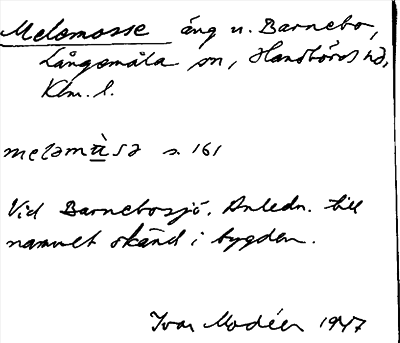 Melomosse äng u. Barnebo,
Långemåla sn, Handbörds hd,
Klm. l.
meləmùsə s. 161
Vid Barnebosjö. Anledn. till
namnet okänd i bygden.
Ivar Modéer 1947